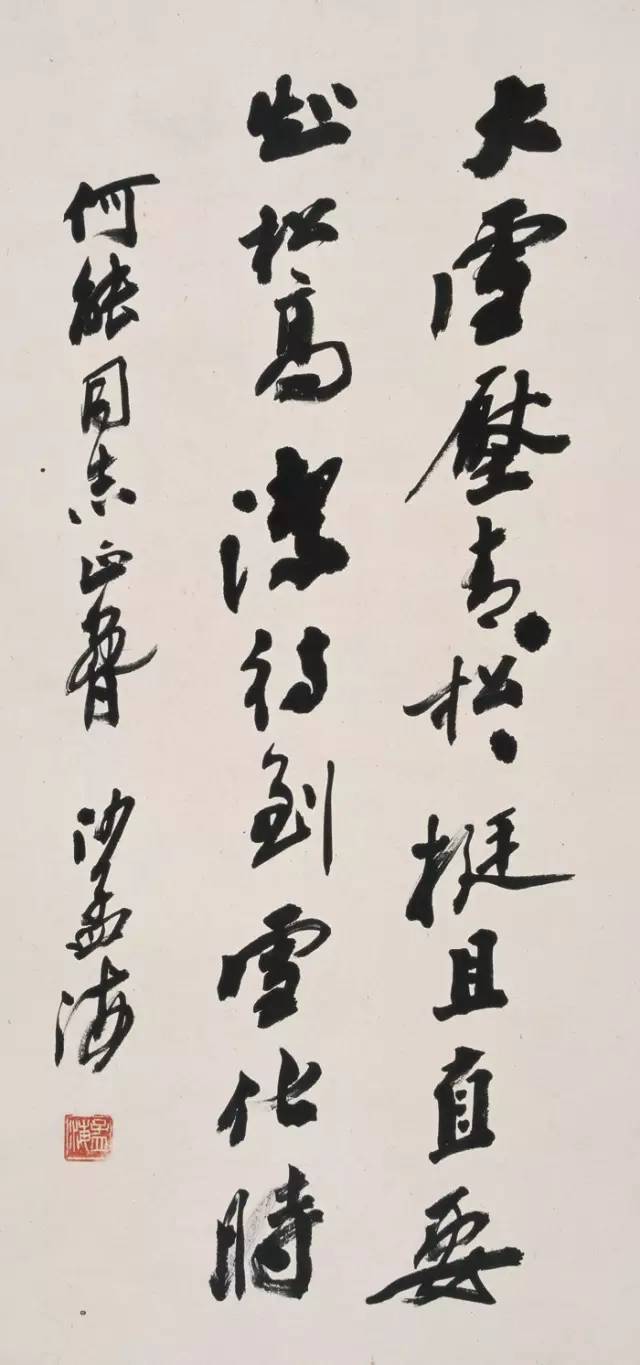 大雪壓青、松、挺且直要
知松高潔待到雪化時
何能同志正 沙孟海
孟海